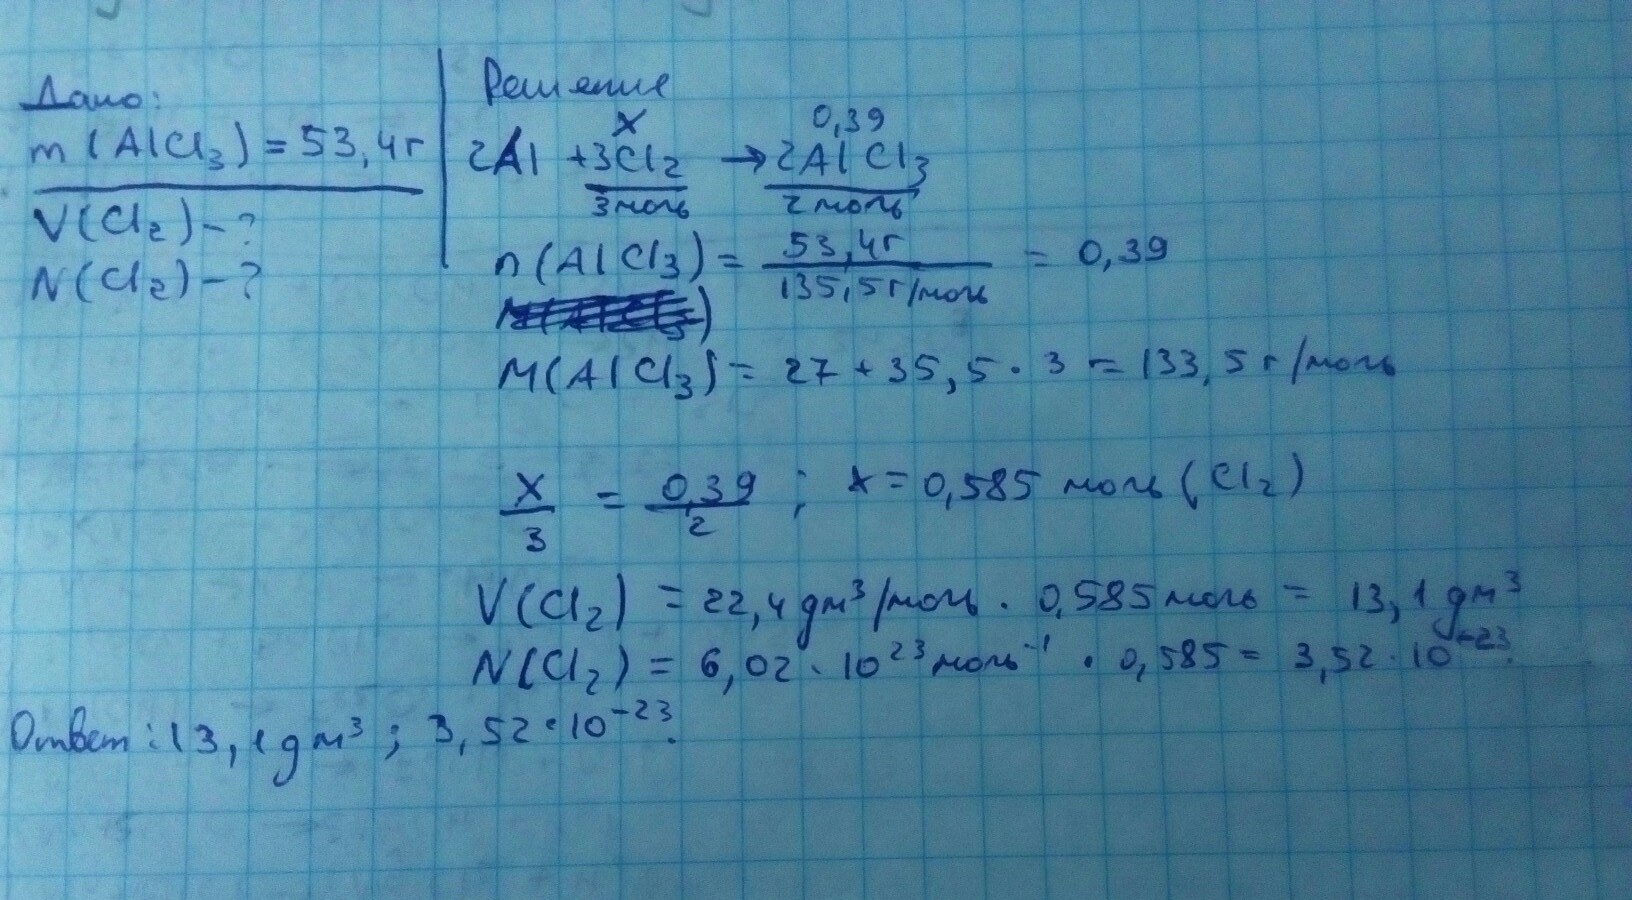 Дано:
m(AlCl₃) = 53,4г
V(Cl₂) - ?
N(Cl₂) - ?
Решение
x 0,39
2Al + 3Cl₂ → 2AlCl₃
3моль 2моль
n(AlCl₃) = 53,4г / 135,5г/моль = 0,39
M(AlCl₃) = 27 + 35,5 · 3 = 133,5г/моль
x/3 = 0,39/2 ; x = 0,585 моль (Cl₂)
V(Cl₂) = 22,4 дм³/моль · 0,585 моль = 13,1 дм³
N(Cl₂) = 6,02 · 10²³ моль⁻¹ · 0,585 = 3,52 · 10⁻²³.
Ответ: 13,1 дм³ ; 3,52 · 10⁻²³.